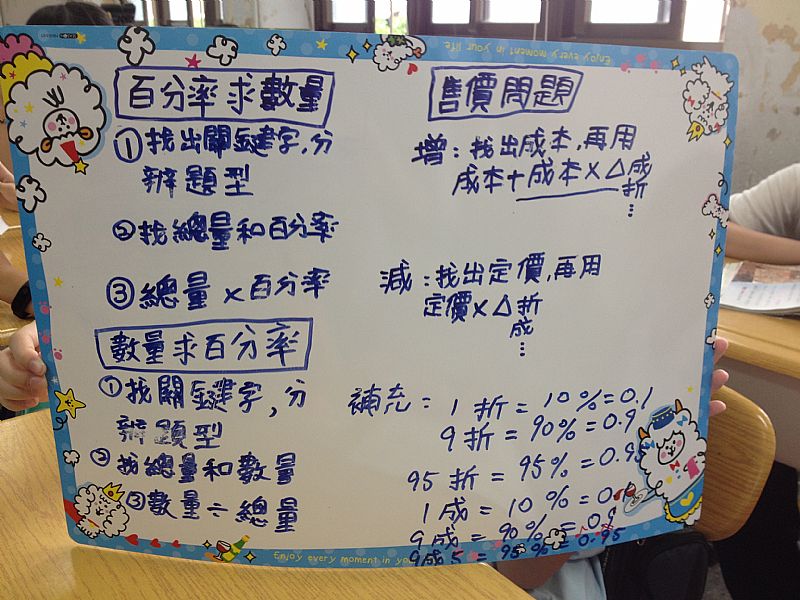 百分率求數量
①找出關鍵字,分
辨題型
②找總量和百分率
③總量×百分率
數量求百分率
①找關鍵字,分
辨題型
②找總量和數量
③數量÷總量
售價問題
增:找出成本,再用
成本+成本×△成
折
⋮
減:找出定價,再用
定價×△折
成
⋮
補充:1折=10%=0.1
9折=90%=0.9
95折=95%=0.95
1成=10%=0.
9成=90%=0.9
9成5=95%=0.95
Enjoy every moment in your life
Enjoy every moment in you